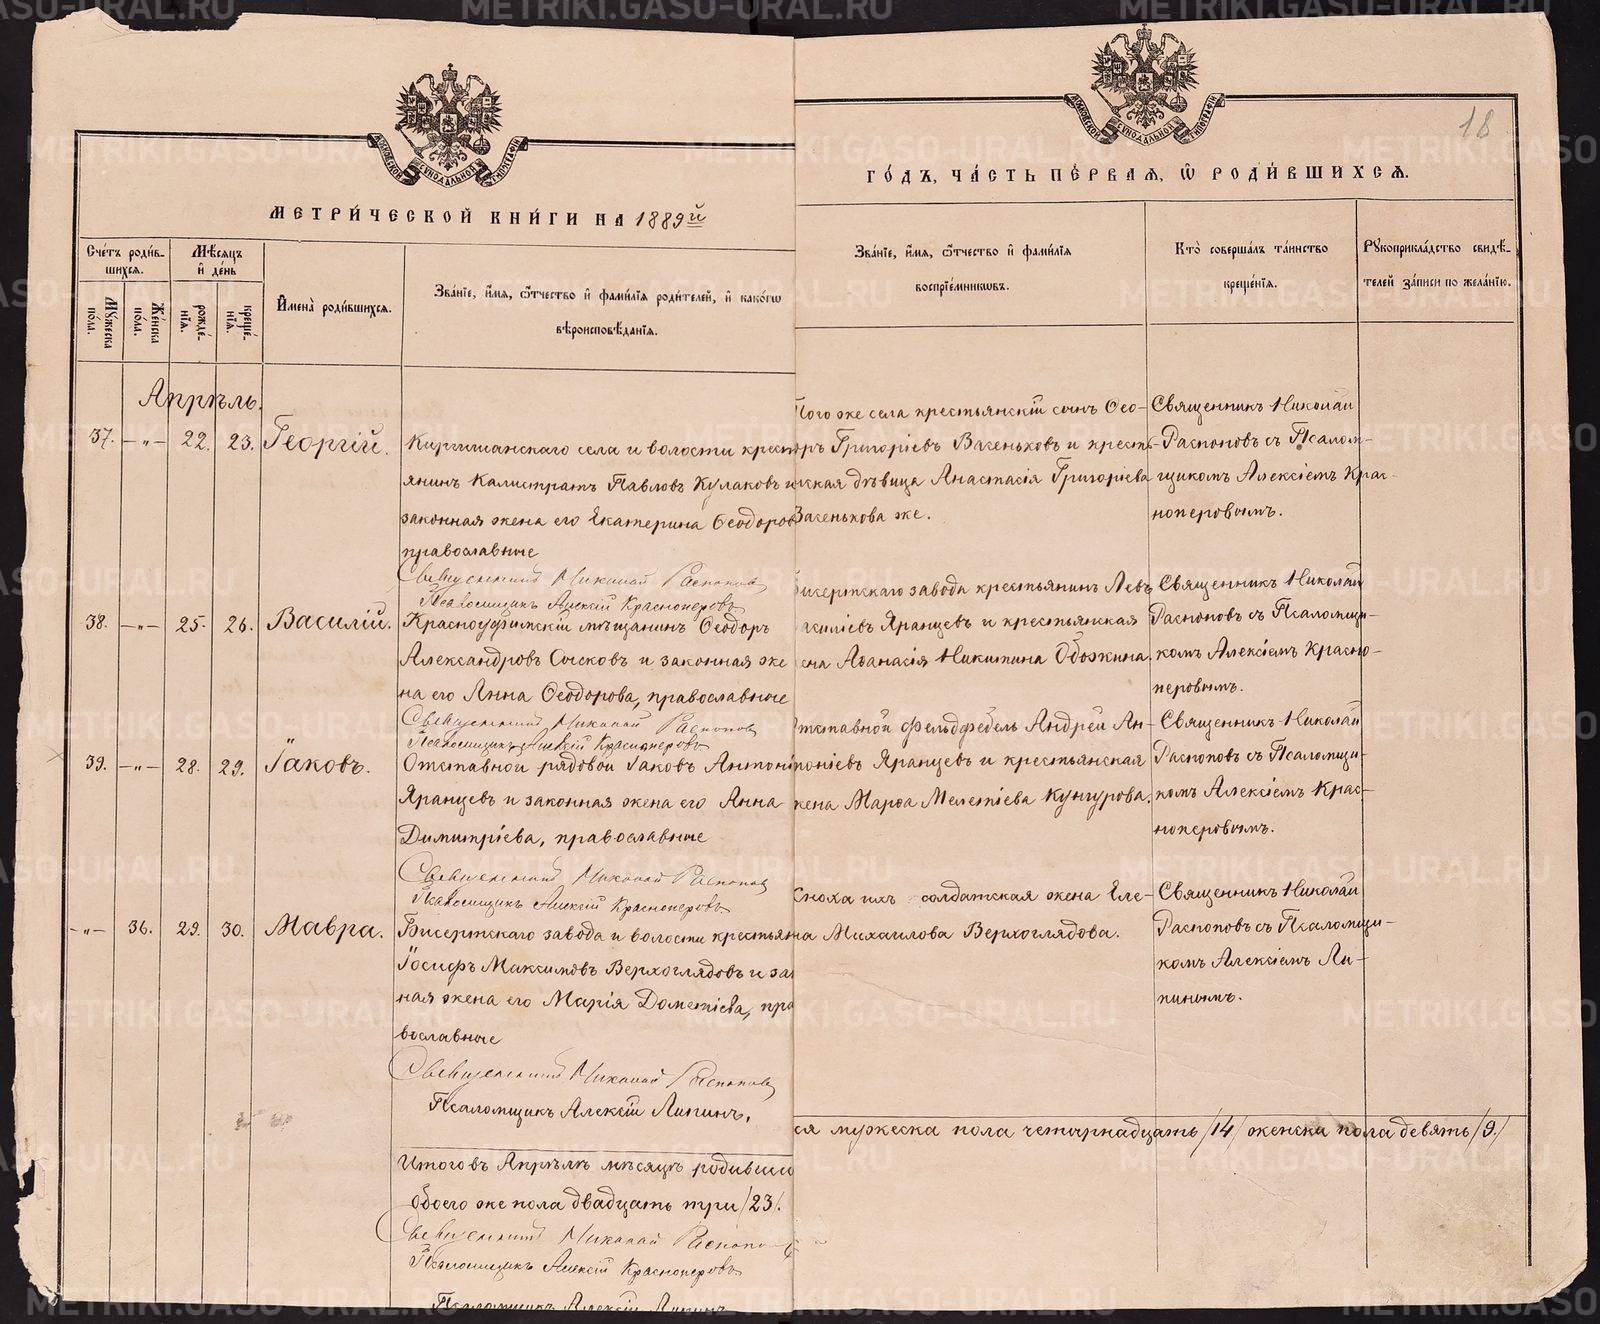 18
МОСКОВСКОЙ СѴНОДАЛЬНОЙ ТИПОГРАФІИ
МОСКОВСКОЙ СѴНОДАЛЬНОЙ ТИПОГРАФІИ
МЕТРИ́ЧЕСКОЙ КНИ́ГИ НА 1889й
ГО́ДЪ, ЧА́СТЬ ПЕ́РВАѦ, Ѡ РОДИ́ВШИХСѦ.
Сче́тъ роди́в-
шихсѧ.
Мꙋ́жеска по́ла.
Же́нска по́ла.
Мѣ́сѧцъ и де́нь
рожде́-нїѧ.
креще́-нїѧ.
Имена̀ роди́вшихсѧ.
Зва́нїе, и́мѧ, ѻ́тчество и фами́лїѧ роди́телей, и како́гѡ
вѣроисповѣ́данїѧ.
Зва́нїе, и́мѧ, ѻ́тчество и фами́лїѧ
воспрїе́мникѡвъ.
Кто̀ соверша́лъ та́инство
креще́нїѧ.
Рꙋкоприкла́дство свидѣ́-
телей за́писи по жела́нїю.
Апрѣль.
37. —„— 22. 23. Георгій.
Киргишанскаго села и волости крест
янинъ Калистратъ Павловъ Кулаковъ и
законная жена его Екатерина Ѳеодоров
православные
Священникъ Николай Распоповъ
Псаломщикъ Алексій Красноперовъ
Того же села крестьянскій сынъ Ѳео-
оръ Григоріевъ Васеньковъ и кресть-
нская дѣвица Анастасія Григоріева
Васенькова же.
Священникъ Николай
Распоповъ съ Псалом-
щикомъ Алексіемъ Крас-
ноперовымъ.
38. —„— 25. 26. Василій.
Красноуфимскій мѣщанинъ Ѳеодоръ
Александровъ Сысковъ и законная же
на его Анна Ѳеодорова, православные
Священникъ Николай Распоповъ
Псаломщикъ Алексій Красноперовъ
Бисертскаго завода крестьянинъ Левъ
асиліевъ Яранцевъ и крестьянская
ена Аѳанасія Никитина Обожина.
Священникъ Николай
Распоповъ съ Псаломщи-
комъ Алексіемъ Красно-
перовымъ.
39. —„— 28. 29. Іаковъ.
Отставной рядовой Іаковъ Антоні
Яранцевъ и законная жена его Анна
Димитріева, православные
Священникъ Николай Распоповъ
Псаломщикъ Алексій Красноперовъ
Отставной Фельдфебель Андрей Ан-
тоніевъ Яранцевъ и крестьянская
жена Марѳа Мелетіева Кунгурова.
Священникъ Николай
Распоповъ съ Псаломщи-
комъ Алексіемъ Крас-
ноперовымъ.
—„— 36. 29. 30. Мавра.
Бисертскаго завода и волости крестьян
Іосифъ Максимовъ Верхоглядовъ и зак
ная жена его Марія Дометіева, пра
вославные
Священникъ Николай Распоповъ
Псаломщикъ Алексій Липинъ.
Сноха ихъ солдатская жена Еле-
на Михаилова Верхоглядова.
Священникъ Николай
Распоповъ съ Псаломщи-
комъ Алексіемъ Ли-
пинымъ.
Итого въ Апрѣлѣ мѣсяцѣ родивши
ся мужеска пола четырнадцать /14/ женска пола девять /9./
обоего же пола двадцать три /23/.
Священникъ Николай Распоповъ
Псаломщикъ Алексій Красноперовъ
Псаломщикъ Алексій Липинъ